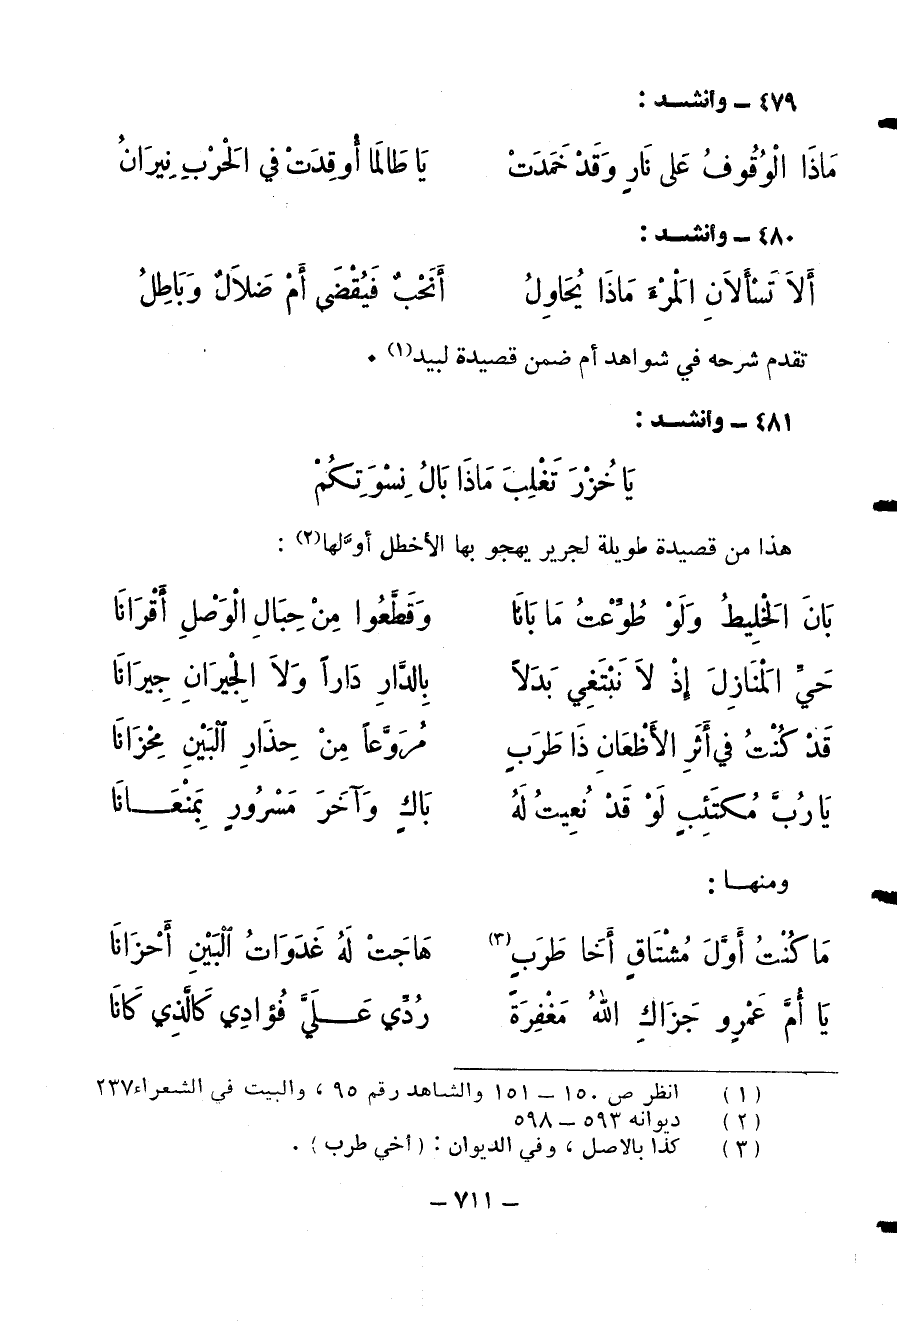 ٤٧٩ – وأنشد :
مَاذَا الْوُقُوفُ عَلى نَارٍ وَقَدْ خَمَدَتْ يَا طَالَمَا أُوقِدَتْ في الْحَرْبِ نِيرَانُ
٤٨٠ – وأنشد :
أَلاَ تَسْأَلاَنِ الْمَرْءَ مَاذَا يُحَاوِلُ أَنَحْبٌ فَيُقْضَى أَمْ ضَلاَلٌ وَبَاطِلُ
تقدم شرحه في شواهد أم ضمن قصيدة لبيد(١) .
٤٨١ – وأنشد :
يَا خُزْرَ تَغْلِبَ مَاذَا بَالُ نِسْوَتِكُمْ
هذا من قصيدة طويلة لجرير يهجو بها الأخطل أوَّلها(٢) :
بَانَ الْخَلِيطُ وَلَوْ طُوِّعْتُ مَا بَانَا وَقَطَّعُوا مِنْ حِبَالِ الْوَصْلِ أَقْرَانَا
حَيِّ الْمَنَازِلَ إِذْ لاَ نَبْتَغِي بَدَلاً بِالدَّارِ دَاراً وَلاَ الْجِيرَانِ جِيرَانَا
قَدْ كُنْتُ في أَثَرِ الأَظْعَانِ ذَا طَرَبٍ مُرَوَّعاً مِنْ حِذَارِ الْبَيْنِ مِحْزَانَا
يَا رُبَّ مُكْتَئِبٍ لَوْ قَدْ نُعِيتُ لَهُ بَاكٍ وَآخَرَ مَسْرُورٍ بِمَنْعَــانَا
ومنهـا :
مَا كُنْتُ أَوَّلَ مُشْتَاقٍ أَخَا طَرَبٍ(٣) هَاجَتْ لَهُ غَدَوَاتُ الْبَيْنِ أَحْزَانَا
يَا أُمَّ عَمْرٍو جَزَاكِ اللهُ مَغْفِرَةً رُدِّي عَــلَيَّ فُؤَادِي كَالَّذِي كَانَا
(١) انظر ص ١٥٠ – ١٥١ والشاهد رقم ٩٥ ، والبيت في الشعراء٢٣٧
(٢) ديوانه ٥٩٣ – ٥٩٨
(٣) كذا بالاصل ، وفي الديوان : (أخي طرب) .
– ٧١١ –